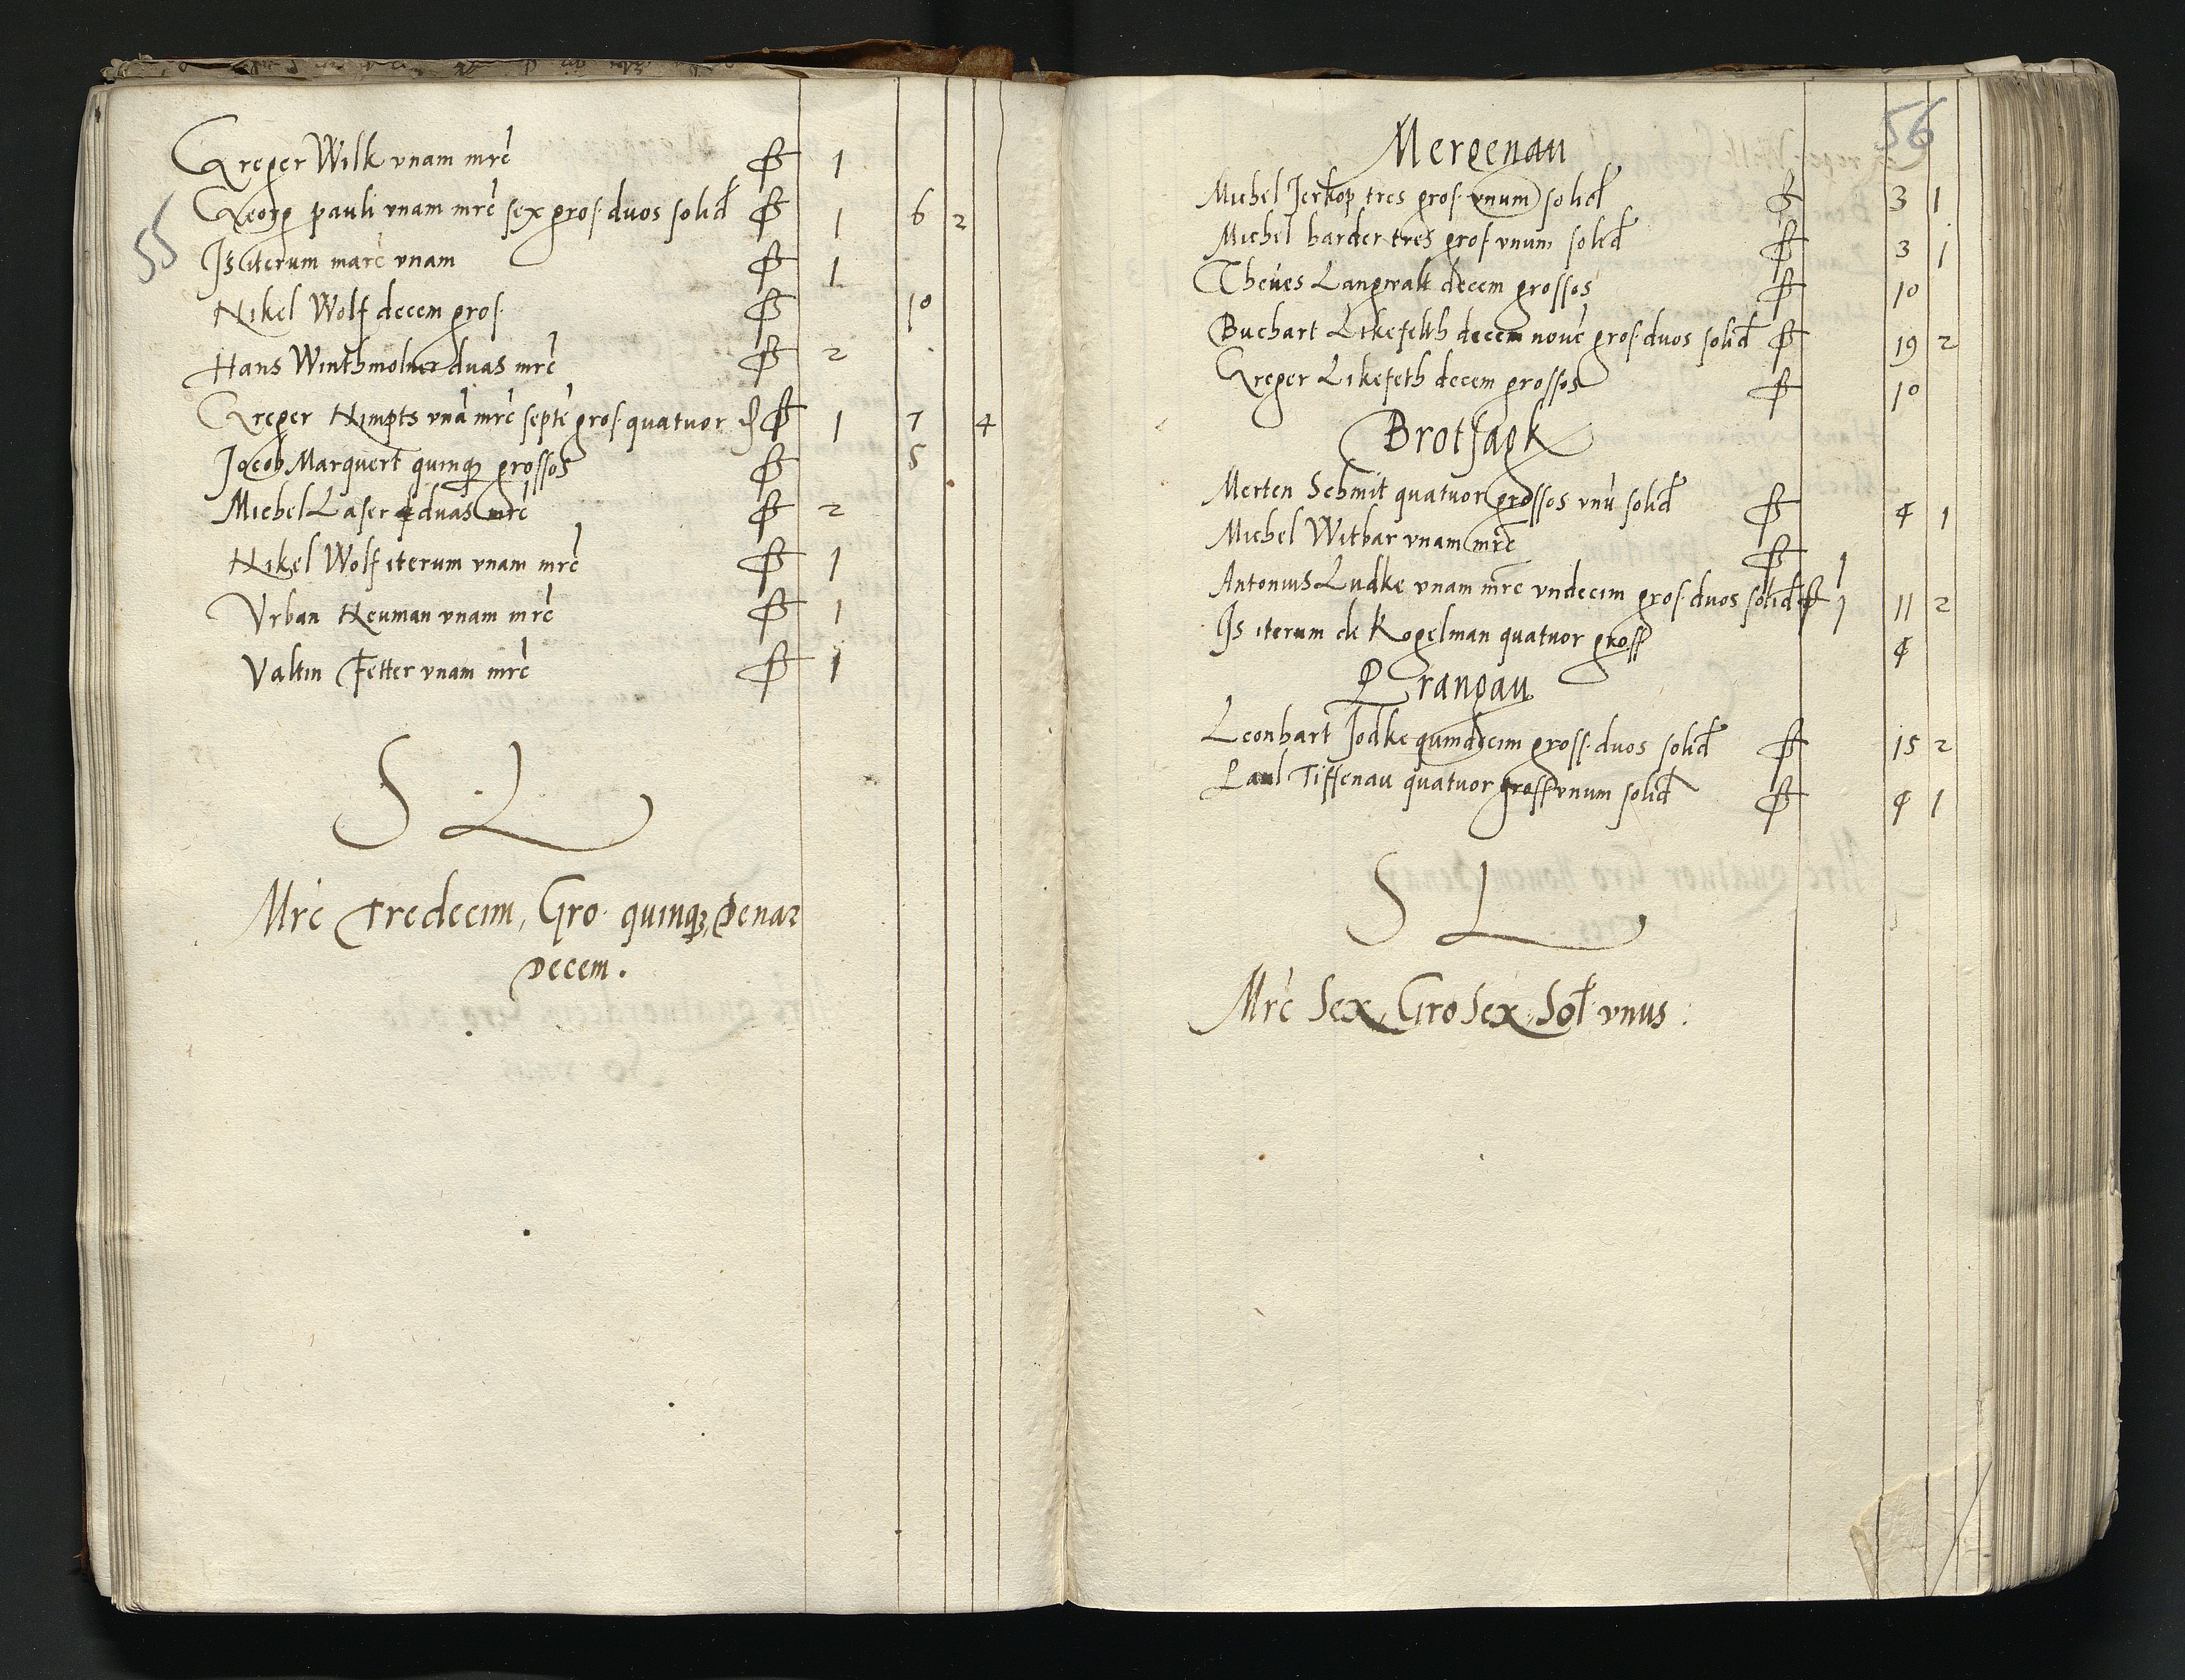 Greger Wilk vnam mrc ƒ 1
55
Georg pauli vnam mrc sex gros. duos solid ƒ 1 6 2
Is iterum marc vnam ƒ 1
Nikel Wolf decem gros. ƒ 10
Hans Winthmolner duas mrc ƒ 2
Greger Nimpts vnā mrc septē gros. quatuor ₰ ƒ 1 7 4
Jocob Marquert quinqꝫ grossos ƒ 5
Michel Laser duas mrc ƒ 2
Nikel Wolf iterum vnam mrc ƒ 1
Vrban Neuman vnam mrc ƒ 1
Valtin Fetter vnam mrc ƒ 1
S L
Mrc Tredecim, Gro. quinqꝫ, Denar
Decem.
56
Mergenau
Michel Jerkop tres gros. vnum solid ƒ 3 1
Michel harder tres gros vnum solid ƒ 3 1
Theues Langwalt decem grossos ƒ 10
Buchart Likefelth decem nouē gros. duos solid ƒ 19 2
Greger Likefeth decem grossos ƒ 10
Brotsack
Merten Schmit quatuor grossos vnū solid ƒ 4 1
Michel Witbar vnam mrc ƒ 1
Antonius Ludke vnam mrc vndecim gros. duos solid ƒ 1 11 2
Is iterum de Kogelman quatuor gross 4
Prangau
Leonhart Jodke quindecim gross. duos solid ƒ 15 2
Paul Tiffenau quatuor gross vnum solid ƒ 4 1
S L
Mrc Sex, Gro Sex, Sol vnus: